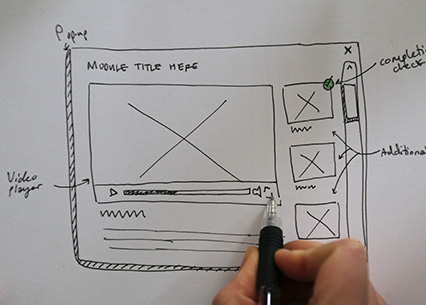 Popup
X
MODULE TITLE HERE
completion
check
Video
player
Additional